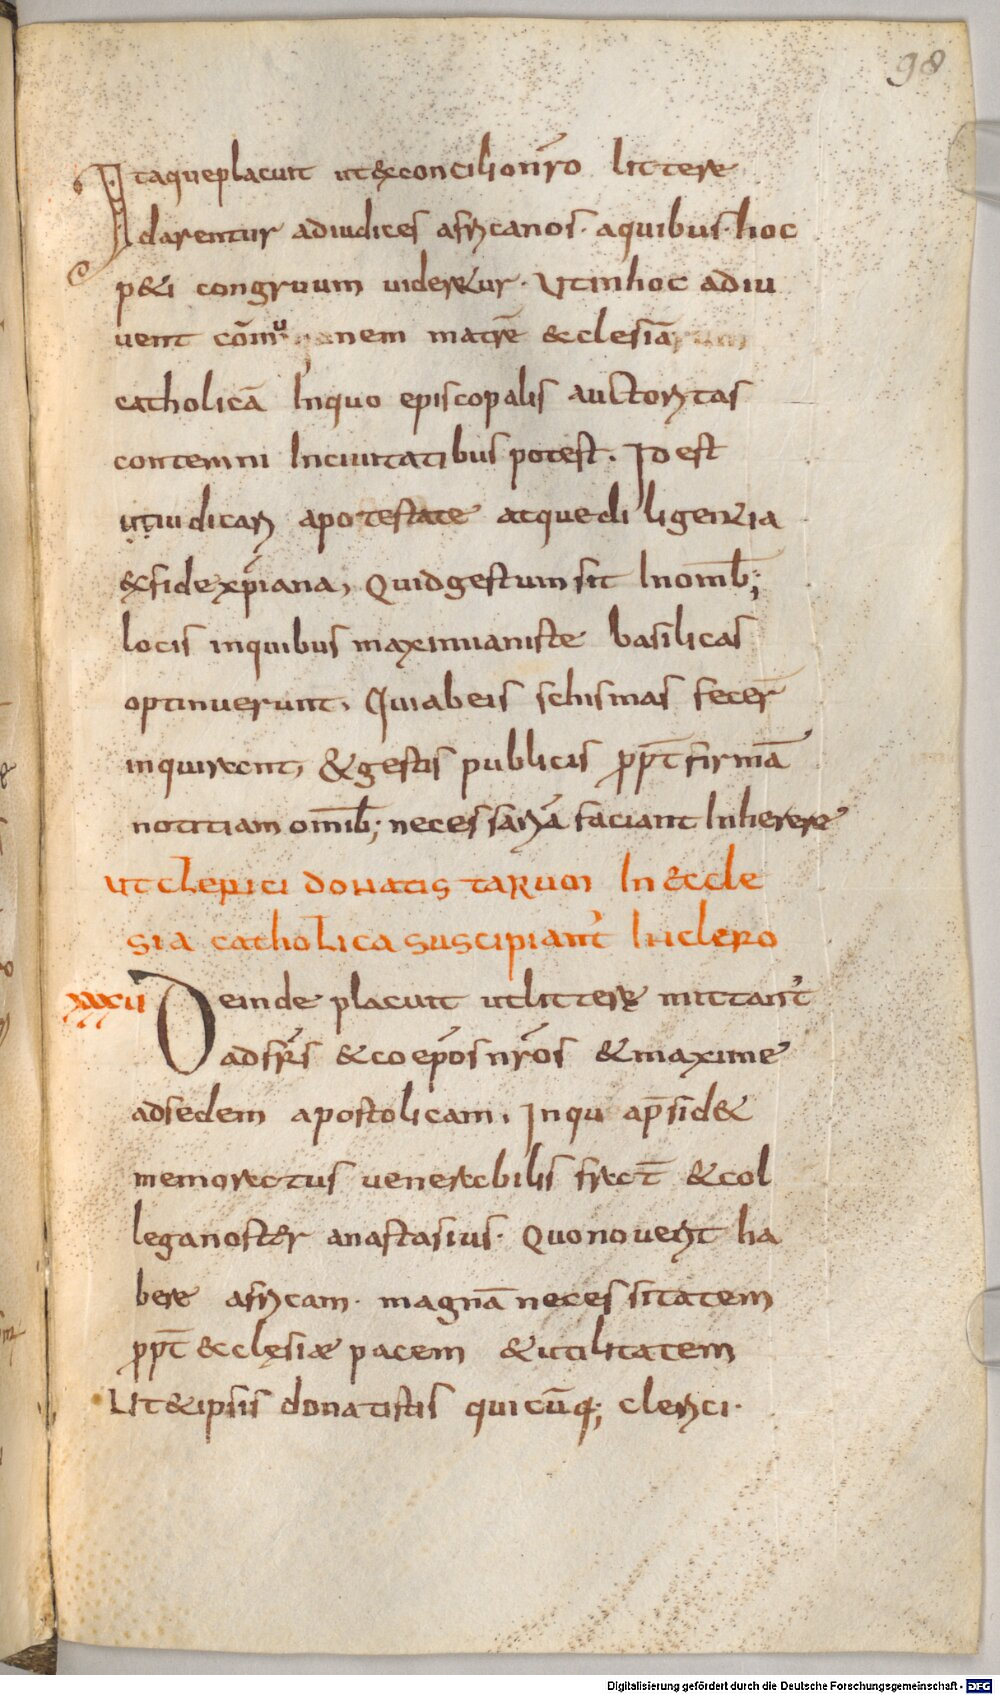 98
Itaqueplacuit ut&exconcilionr̄o littere
darentur adiudices africanos· aquibus·hoc
p&i congruum uider&ur· Utinhoc adiu
uent cōmunem matrē &clesiā
catholicā Inquo episcopalis auctoritas
contemni Inciuitatibus potest. Id est
utiudicari apotestate atquediligentia
&fidexp̄iana, Quidgestumsit Inomib̄;
locis inquibus maximianiste basilicas
optinuerunt, Quiabeis schismas fecer̄
inquirant, &gestis publicis prop̄t firmā
notitiam omib̄; necessariā faciant Inherere
ut clerici donatistarum In &ccle
sia catholica suscipiant' In clero
xxxcii Deinde placuit utlittere mittant'
adfr̄s &coep̄osnr̄os &maxime
adsedem apostolicam, Inqu ap̄sid&
memoratus uenerabilis frat̄ &col
leganoster anastasius· Quonouerit ha
bere africam· magnā necessitatem
prop̄t &clesiæ pacem &utilitatem
Ut&ipsis donatistis quicūq; clerici·
Digitalisierung gefördert durch die Deutsche Forschungsgemeinschaft - DFG